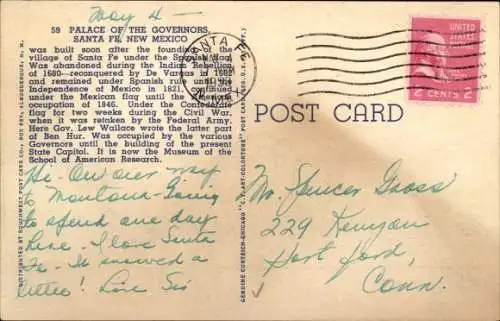 May 4 —
59 PALACE OF THE GOVERNORS,
SANTA FE, NEW MEXICO
was built soon after the founding of the
village of Santa Fe under the Spanish
Was abandoned during the Indian Rebellion
of 1680—reconquered by De Vargas in 1692
and remained under Spanish rule until the
Independence of Mexico in 1821, continued
under the Mexican flag until the
occupation of 1846. Under the Confederate
flag for two weeks during the Civil War,
when it was retaken by the Federal Army.
Here Gov. Lew Wallace wrote the latter part
of Ben Hur. Was occupied by the various
Governors until the building of the present
State Capitol. It is now the Museum of the
School of American Research.
Hi - On our way
to Montana - Going
to spend one day
here. I love Santa
Fe - It snowed a
little! Love Sis
DISTRIBUTED BY SOUTHWEST POST CARD CO., BOX 685, ALBUQUERQUE, N. M.
GENUINE CURTEICH-CHICAGO "C.T. ART-COLORTONE" POST CARD
SANTA FE
UNITED STATES
2 CENTS 2
POST CARD
Mr. Spencer Gross
229 Kenyon
Hartford,
Conn.